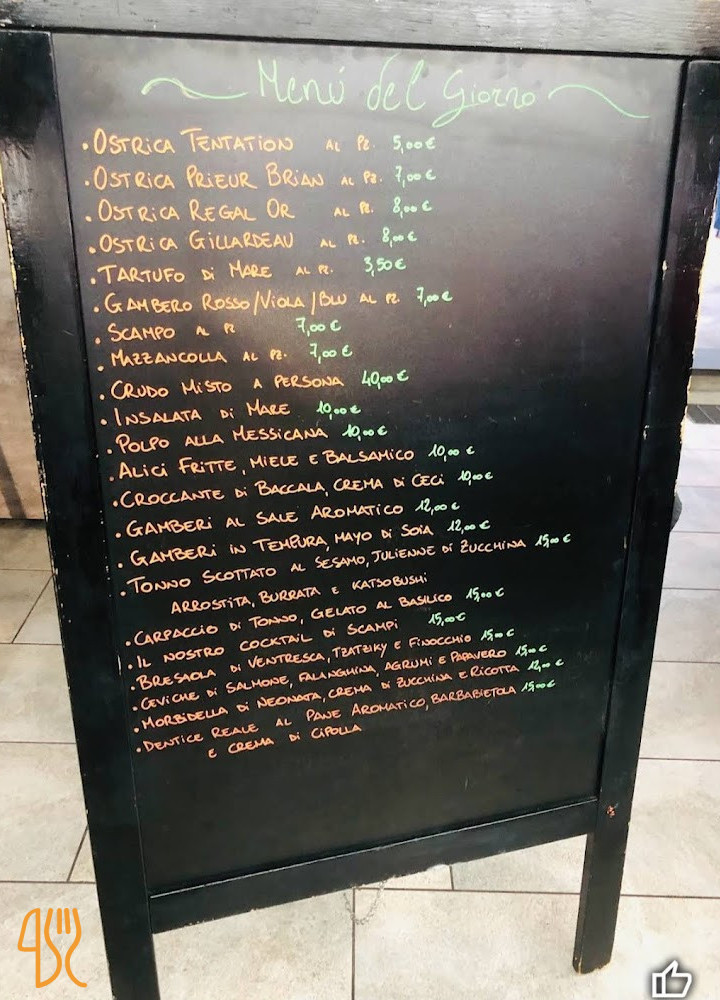 Menú del Giorno
• OSTRICA TENTATION AL PZ. 5,00 €
• OSTRICA PRIEUR BRIAN AL PZ. 7,00 €
• OSTRICA REGAL OR AL PZ. 8,00 €
• OSTRICA GILLARDEAU AL PZ. 8,00 €
• TARTUFO DI MARE AL PZ. 3,50 €
• GAMBERO ROSSO/VIOLA/BLU AL PZ 7,00 €
• SCAMPO AL PZ 7,00 €
• MAZZANCOLLA AL PZ. 7,00 €
• CRUDO MISTO A PERSONA 40,00 €
• INSALATA DI MARE 10,00 €
• POLPO ALLA MESSICANA 10,00 €
• ALICI FRITTE, MIELE E BALSAMICO 10,00 €
• CROCCANTE DI BACCALA, CREMA DI CECI 10,00 €
• GAMBERI AL SALE AROMATICO 12,00 €
• GAMBERI IN TEMPURA, MAYO DI SOIA 12,00 €
• TONNO SCOTTATO AL SESAMO, JULIENNE DI ZUCCHINA 15,00 €
ARROSTITA, BURRATA E KATSOBUSHI
• CARPACCIO DI TONNO, GELATO AL BASILICO 15,00 €
• IL NOSTRO COCKTAIL DI SCAMPI 15,00 €
• BRESAOLA DI VENTRESCA, TZATZIKY E FINOCCHIO 15,00 €
• CEVICHE DI SALMONE, FALANGHINA, AGRUMI E PAPAVERO 15,00 €
• MORBIDELLA DI NEONATA, CREMA DI ZUCCHINA E RICOTTA 12,00 €
• DENTICE REALE AL PANE AROMATICO, BARBABIETOLA 15,00 €
E CREMA DI CIPOLLA